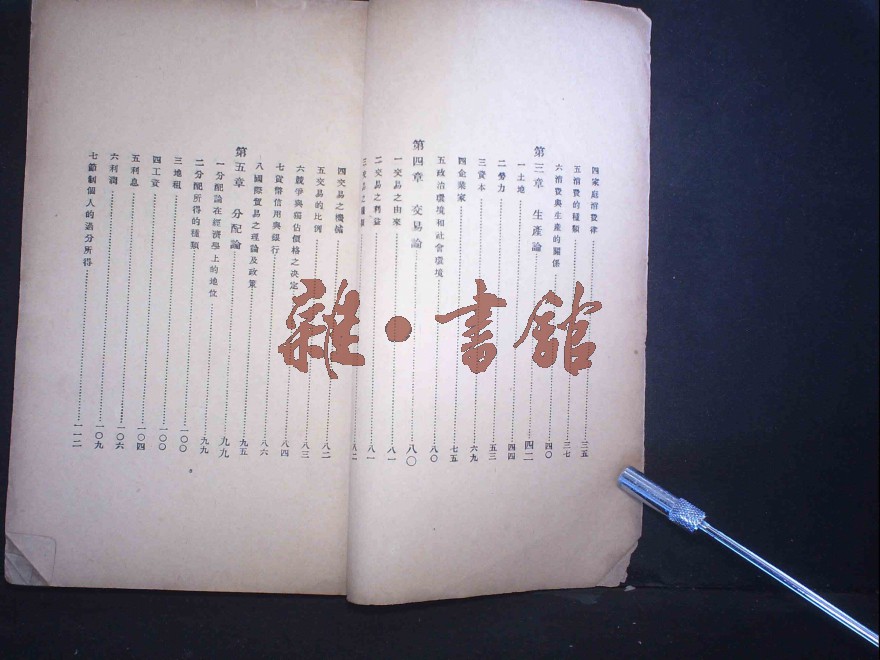 四家庭消費律……三五
五消費的種類……三七
六消費與生產的關係……四〇
第三章 生產論……四二
一土地……四四
二勞力……五三
三資本……六九
四企業家……七五
五政治環境和社會環境……八〇
第四章 交易論……八〇
一交易之由來……八一
二交易之利益……八一
三交易之……八二
四交易之機能……八二
五交易的比例……八三
六競爭與獨佔價格之決定……八四
七貨幣信用與銀行……八六
八國際貿易之理論及政策……九五
第五章 分配論……九九
一分配論在經濟學上的地位……九九
二分配所得的種類……一〇〇
三地租……一〇〇
四工資……一〇四
五利息……一〇六
六利潤……一〇九
七節制個人的過分所得……一一二
雜·書館